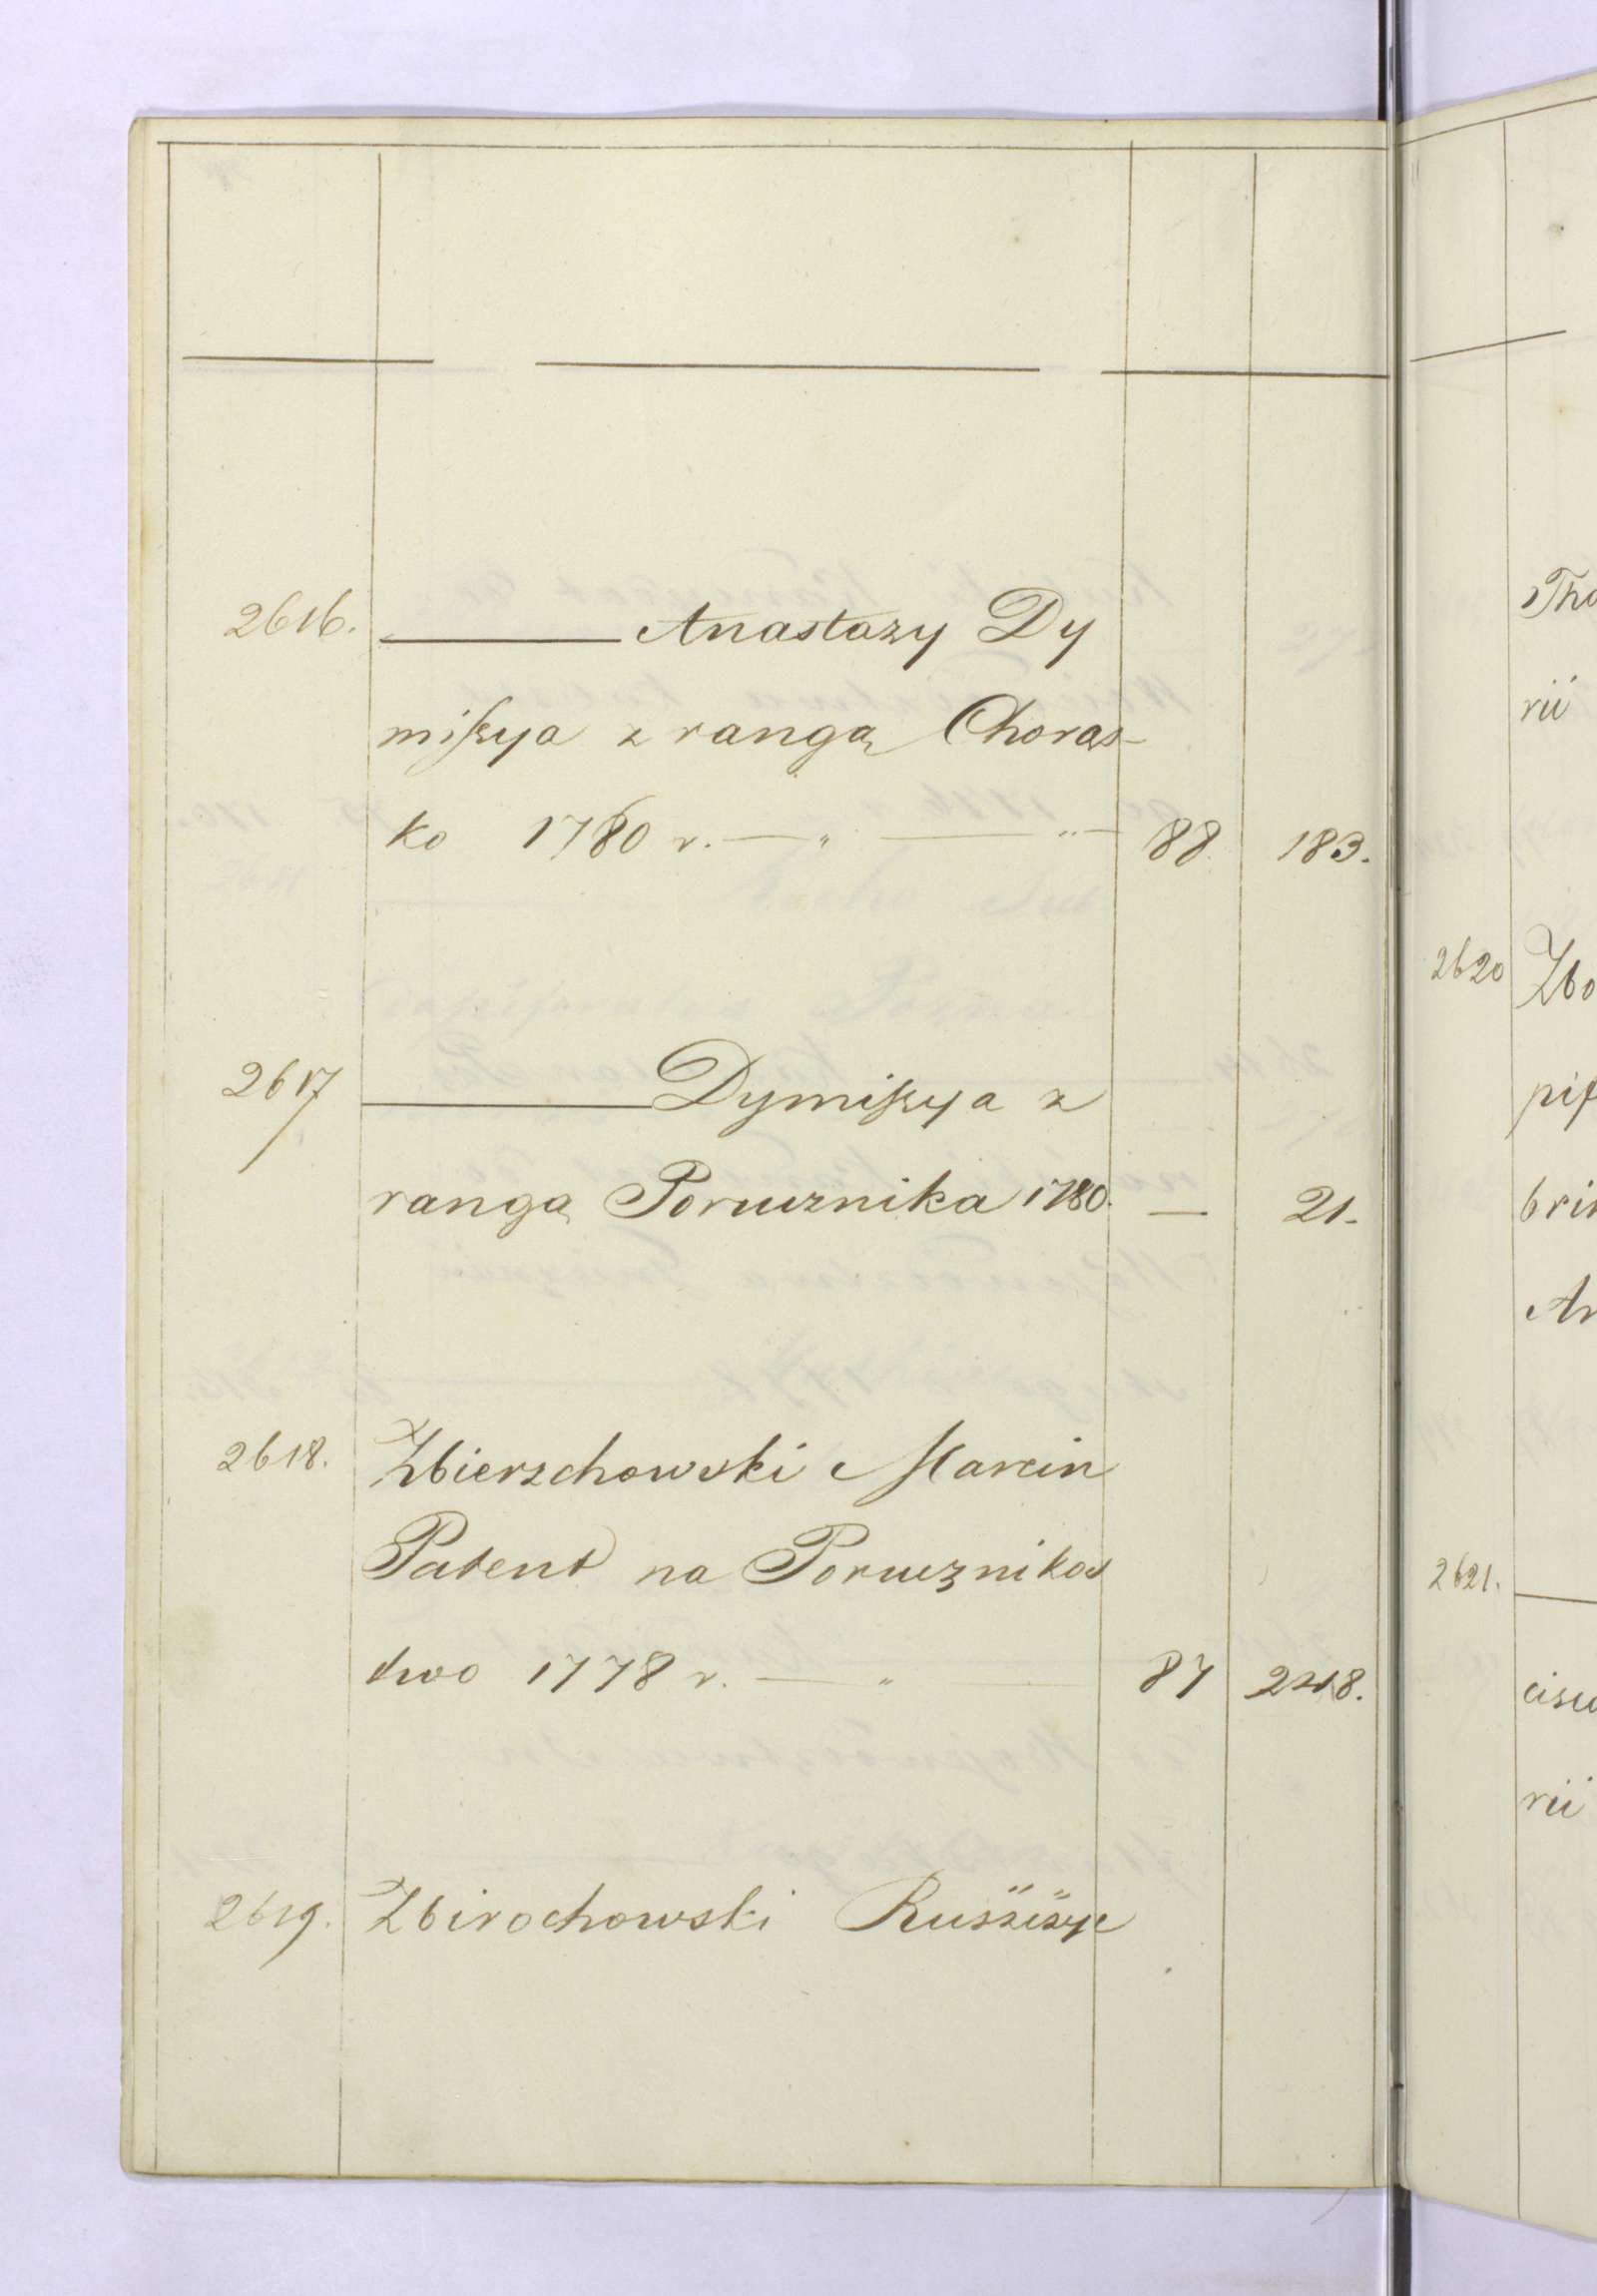 2616. ——— Anastazy Dy
missya z rangą Chorąs-
ko 1780 r. — „ — „ — 88. 183.
2617 ——— Dymissya z
rangą Porucznika 1780. — 21.
2618. Zbierzchowski Marcin
Patent na Porucznikos
two 1778 r. — „ — 87
2619. Zbirochowski
Tho
rii
2620 Zbo
pif
brin
An
2621. —
cisu
rii